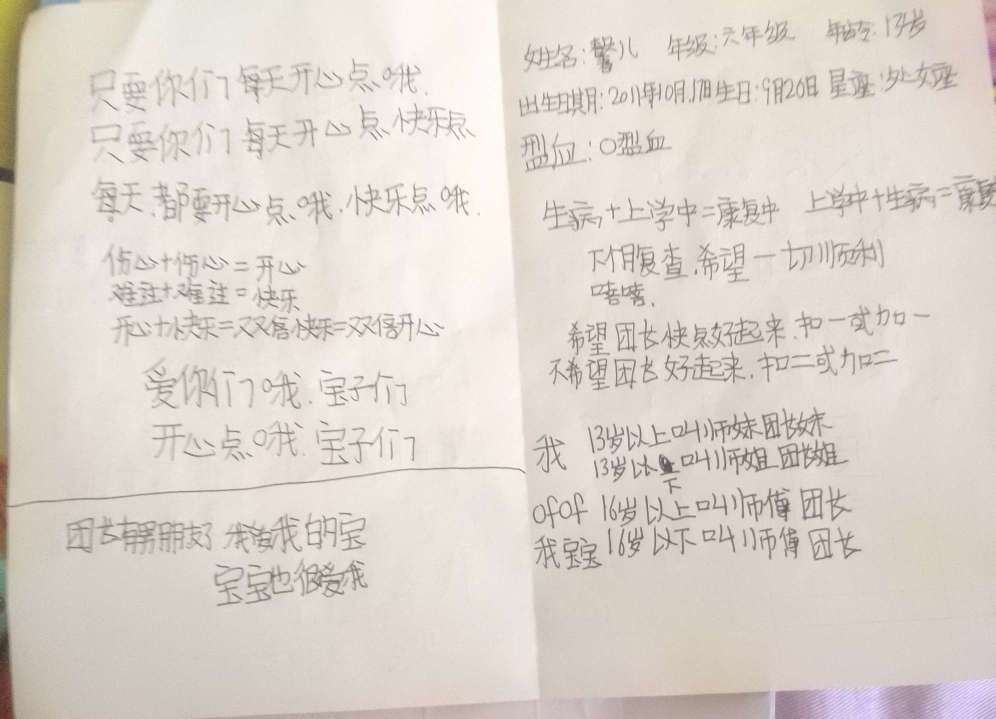 只要你们每天开心点哦.
只要你们每天开心点快乐点
每天.都要开心点哦.快乐点哦.
伤心+伤心=开心
难过+难过=快乐
开心+快乐=双双倍快乐=双倍开心
爱你们哦.宝子们
开心点哦.宝子们
团长有男朋友了 我爱我的宝
宝宝也很爱我
姓名:馨儿 年级:六年级 年龄:13岁
出生日期:2011年10月17日生日:9月20日 星座:处女座
型血:O型血
生病+上学中=康复中 上学中+生病=康复
下个月复查.希望一切顺利
嘻嘻.
希望团长快点好起来.扣一或加一
不希望团长好起来.扣二或加二
我 13岁以上叫师妹团长妹
13岁以下叫师姐团长姐
ofof 16岁以上叫师傅团长
我宝宝 16岁以下叫师傅团长